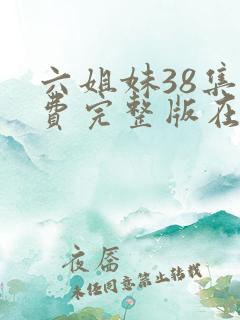 六姐妹38集
费完整版在
夜偛
未经同意禁止转载